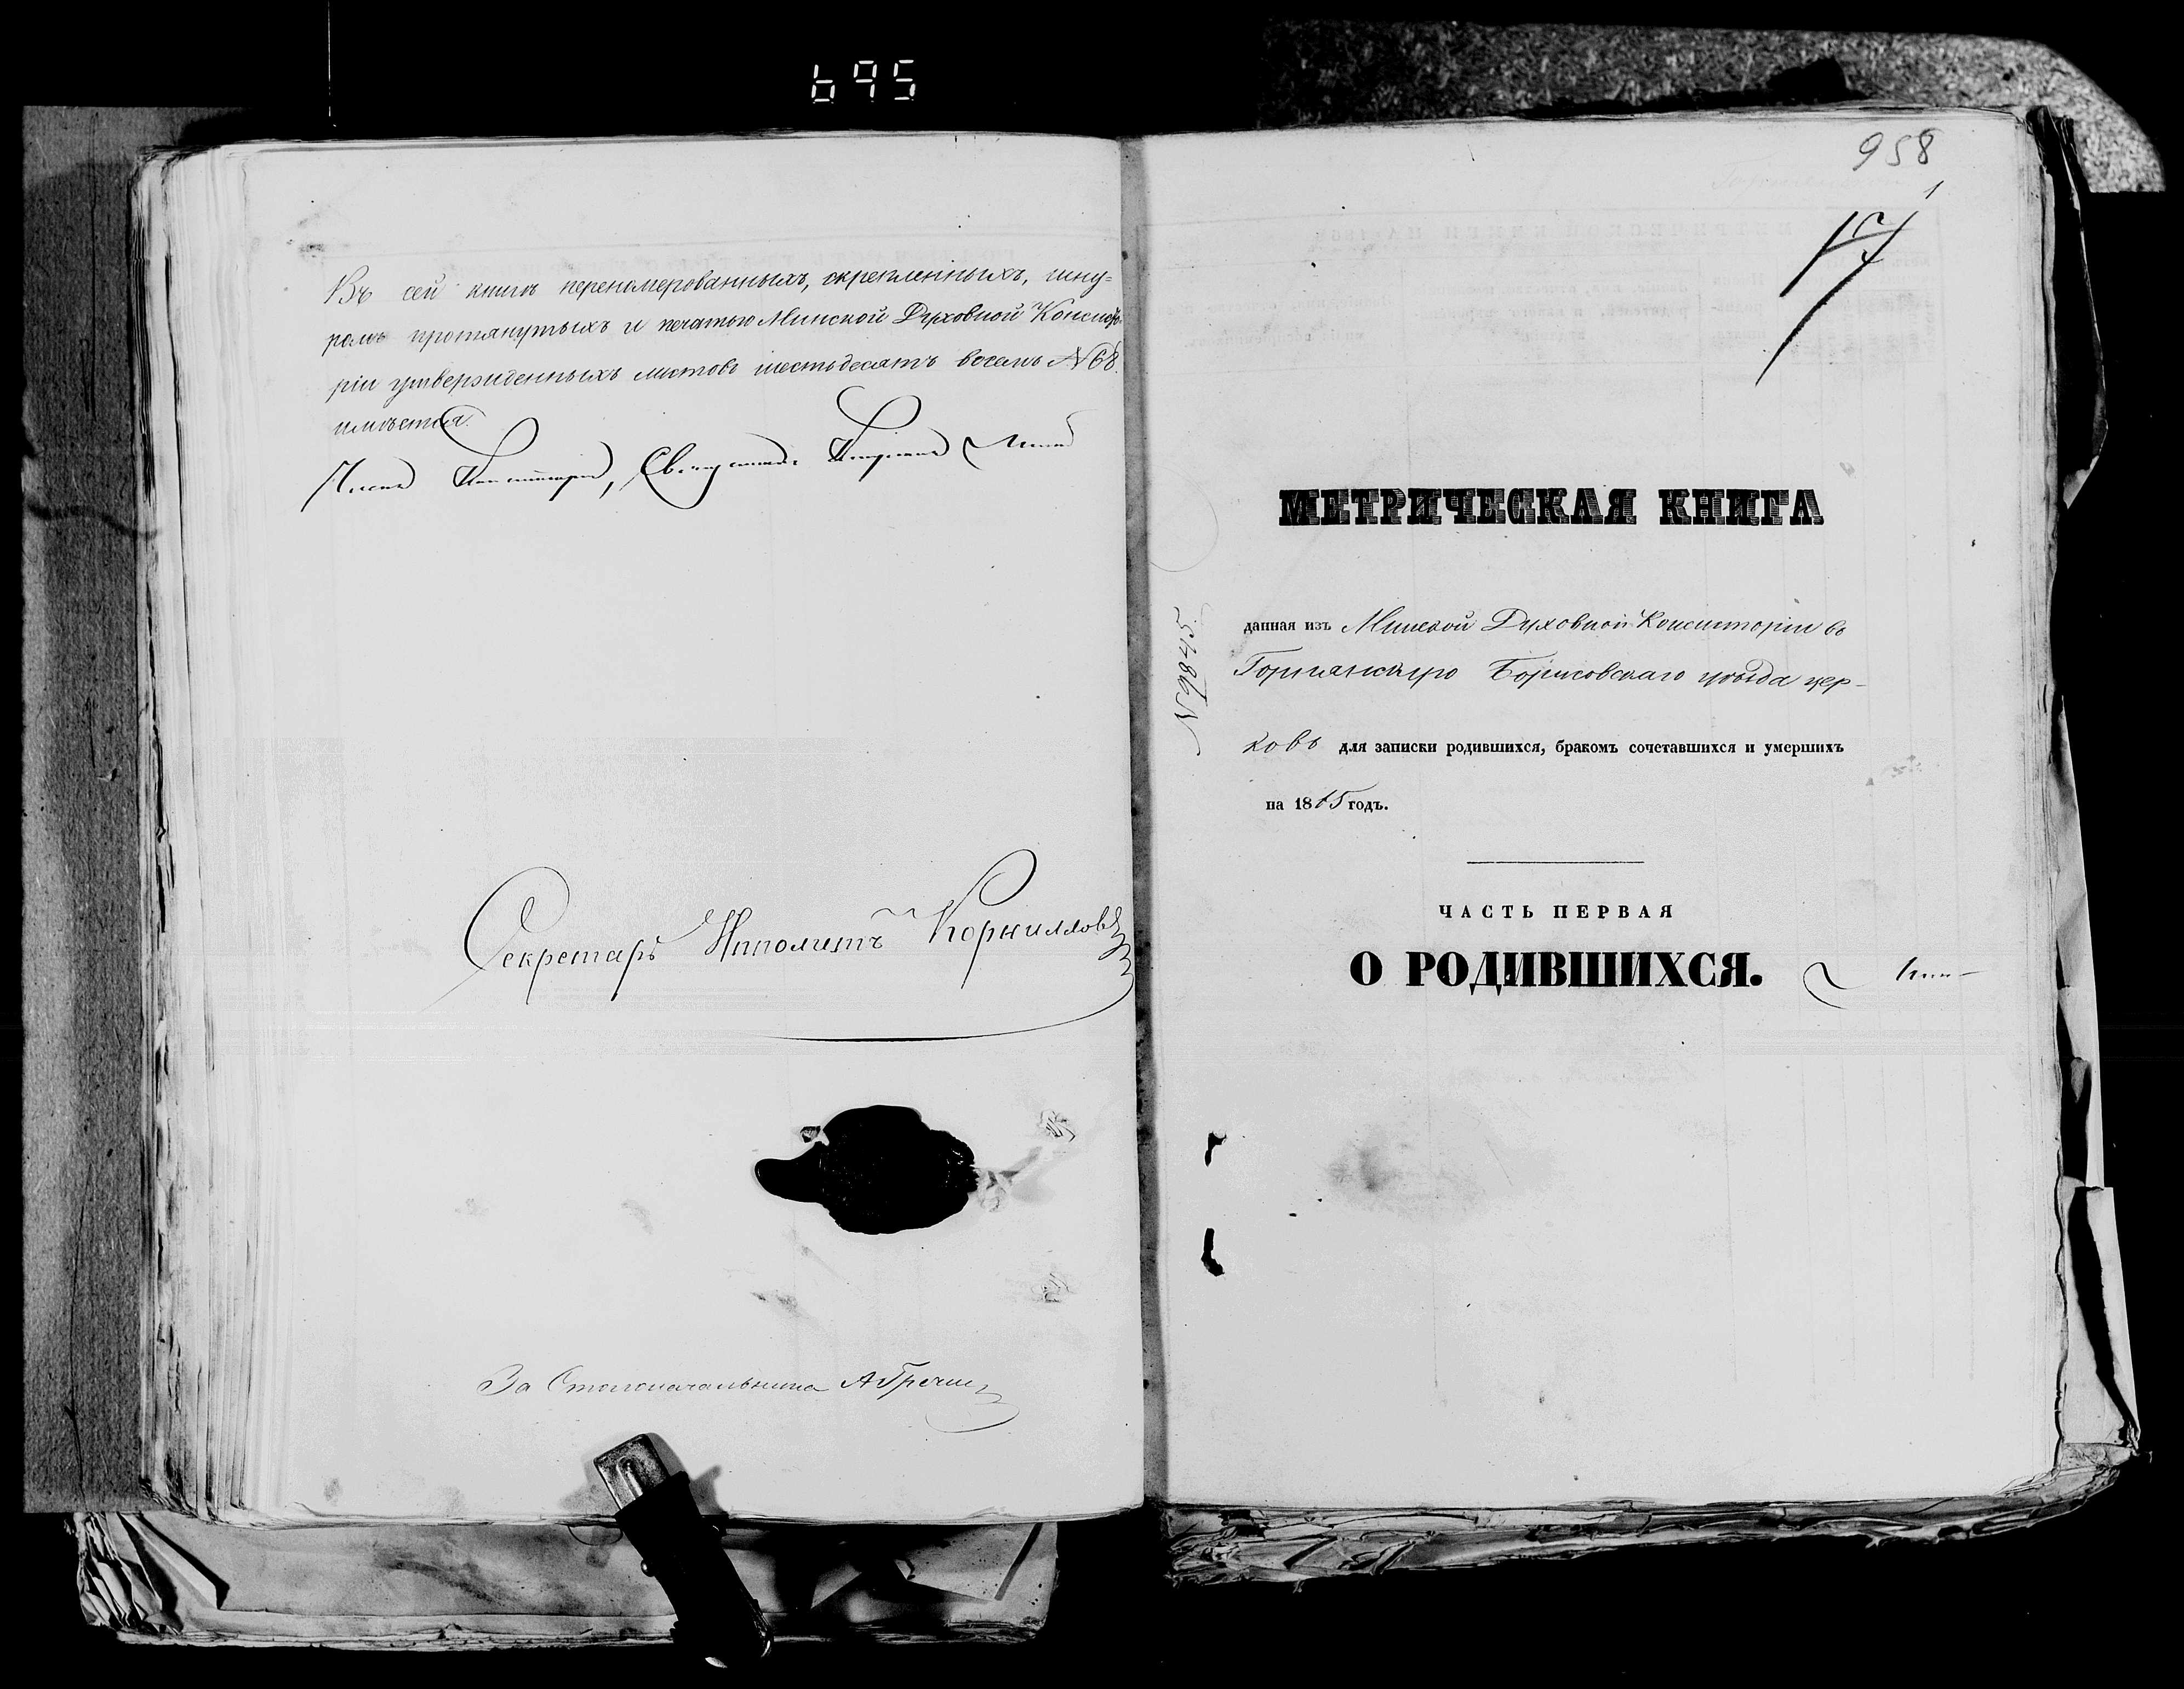 695
Въ сей книгѣ перенумерованныхъ, скрепленныхъ, шну-
ромъ протянутыхъ и печатью Минской Духовной Консисто-
ріи утвержденныхъ листовъ шестьдесятъ восемь №68.
имѣется.
Членъ Консисторіи, Священникъ
Секретарь Ипполитъ Корнилловъ
За Столоначальника
958
1
МЕТРИЧЕСКАЯ КНИГА
данная изъ Минской Духовной Консисторіи въ
Борисовскаго уѣзда цер-
ковь для записки родившихся, бракомъ сочетавшихся и умершихъ
на 1865 годъ.
ЧАСТЬ ПЕРВАЯ
О РОДИВШИХСЯ.